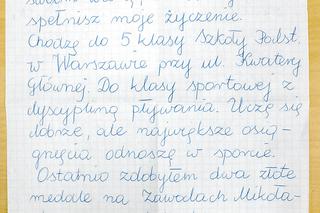 spełnisz moje życzenie.
Chodzę do 5 klasy Szkoły Podst.
w Warszawie przy ul. Kwatery
Głównej. Do klasy sportowej z
dyscypliną pływania. Uczę się
dobrze, ale największe osią-
gnięcia odnoszę w sporcie.
Ostatnio zdobyłem dwa złote
medale na Zawodach Mikoła-